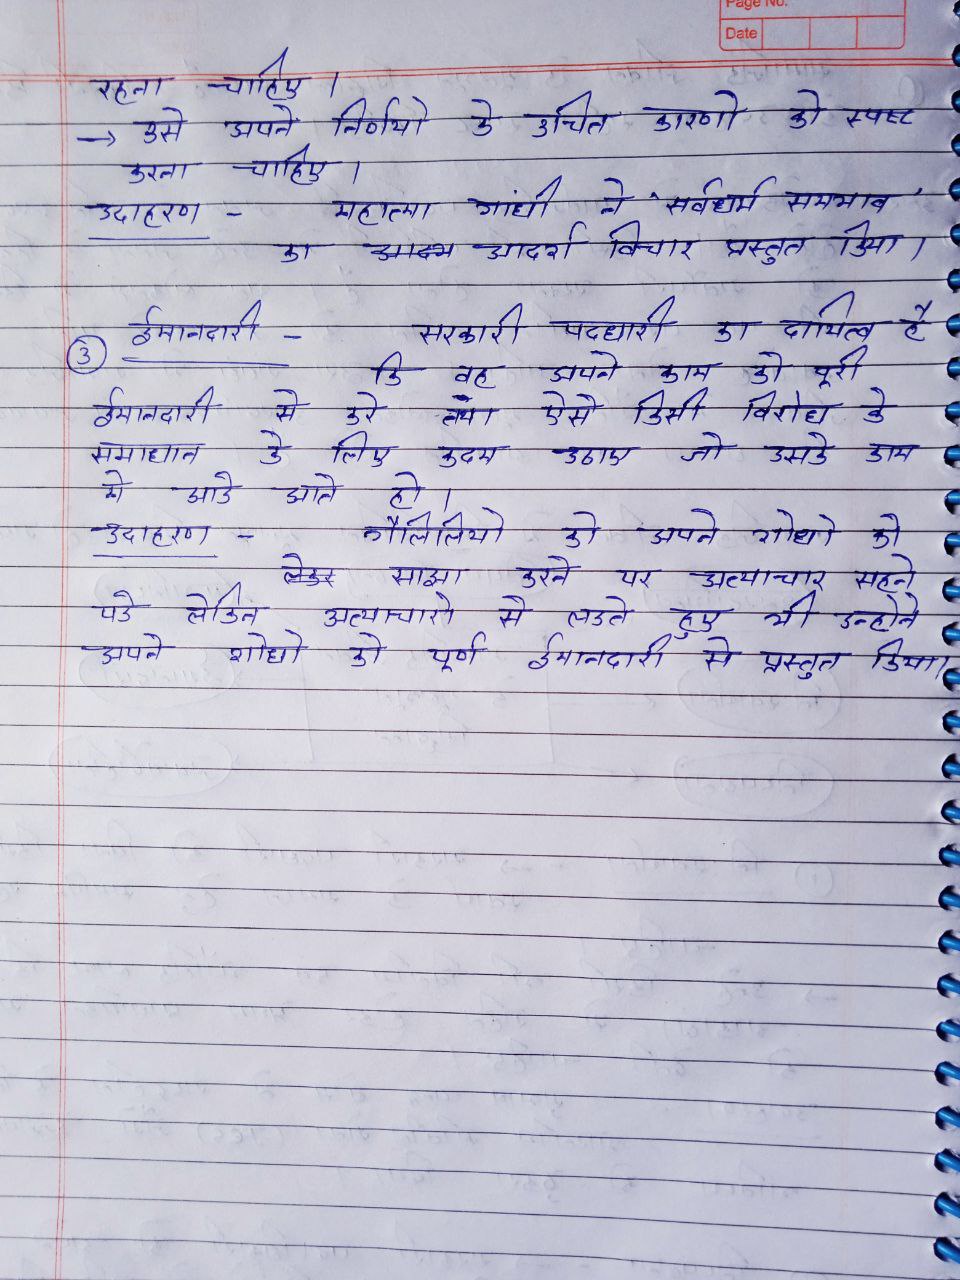 Page No.
Date
रहना चाहिए ।
→ उसे अपने निर्णयो के उचित कारणो को स्पष्ट
करना चाहिए ।
उदाहरण - महात्मा गांधी ने 'सर्वधर्म समभाव'
का आदर्श विचार प्रस्तुत किया ।
③ ईमानदारी - सरकारी पदधारी का दायित्व है
कि वह अपने काम को पूरी
ईमानदारी से करे तथा ऐसे किसी विरोध के
समाधान के लिए कदम उठाए जो उसके काम
मे आडे आते हो ।
उदाहरण - गैलिलियो को अपने शोधो को
लेकर साझा करने पर अत्याचार सहने
पडे लेकिन अत्याचारो से लडते हुए भी उन्होने
अपने शोधो को पूर्ण ईमानदारी से प्रस्तुत किया।